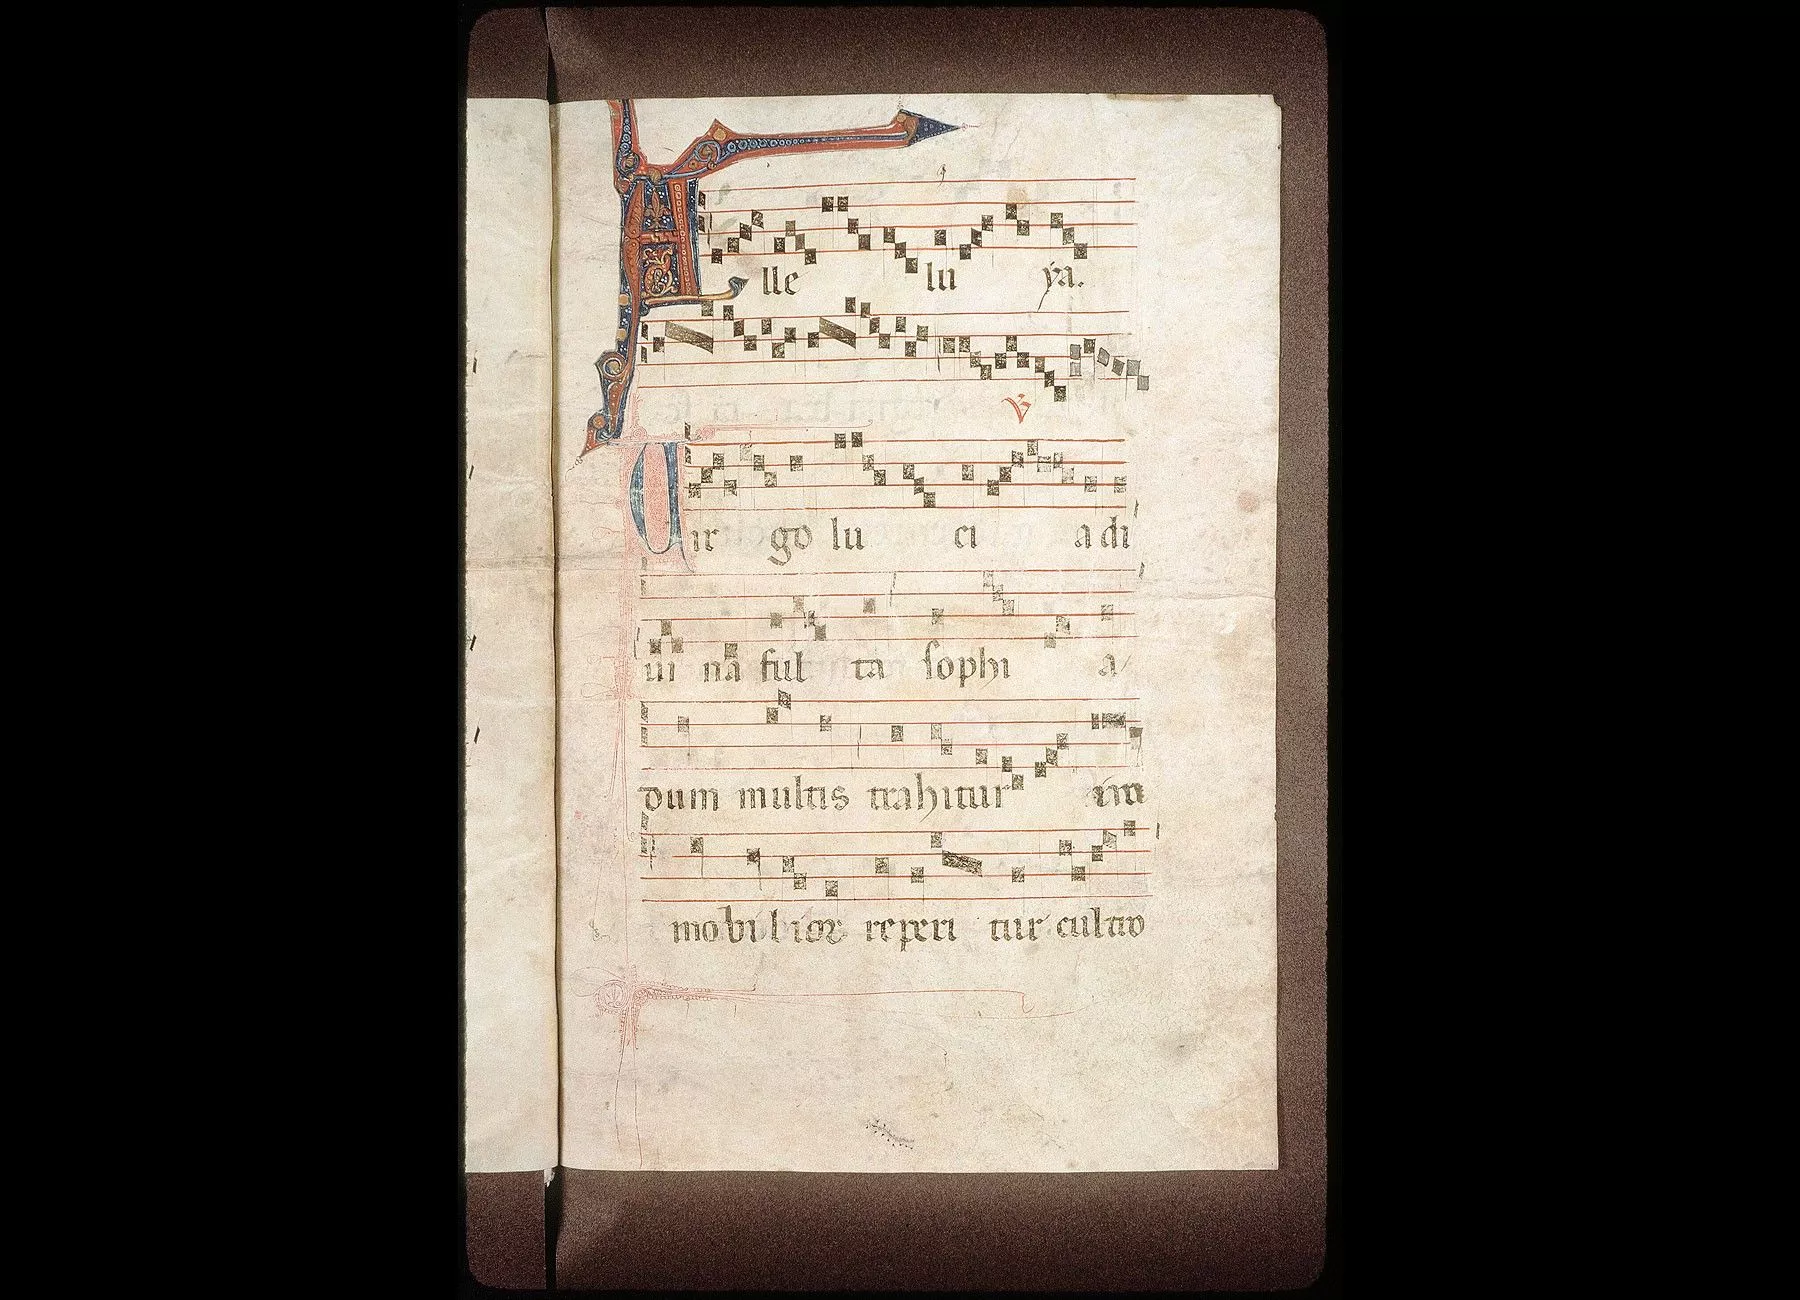 Alle lu ya.
℣
Uir go lu ci a di
ui na ful ta sophi a
dum multis trahitur
mobilior reperi tur